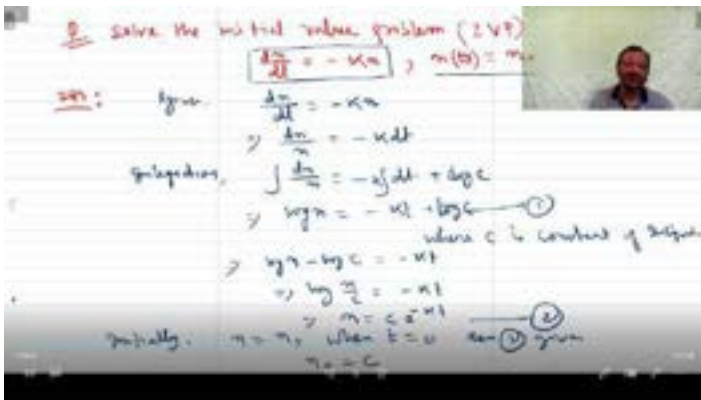 Q. Solve the initial value problem (IVP)
dn/dt = -Kn , n(0) = n₀
Soln: Given dn/dt = -Kn
=> dn/n = -Kdt
Integration, ∫ dn/n = -K∫dt + log c
=> log n = -Kt + log c ①
where c is constant of
=> log n - log c = -Kt
=> log n/c = -Kt
=> n = c e^-Kt ②
Initially, n = n₀ when t = 0 ② gives
n₀ = c